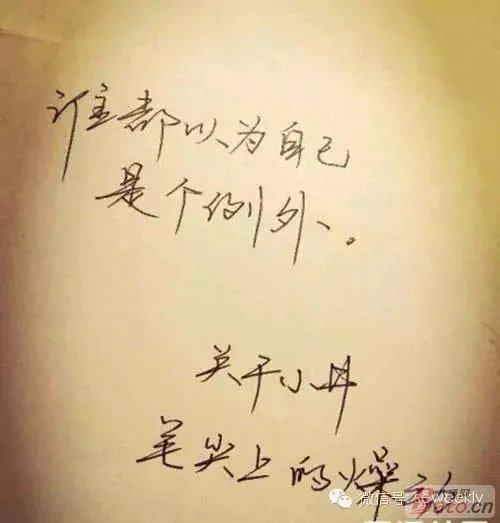 谁都以为自己
是个例外。
关于小丹
笔尖上的燥
微信号: seweekly
Doto.cn